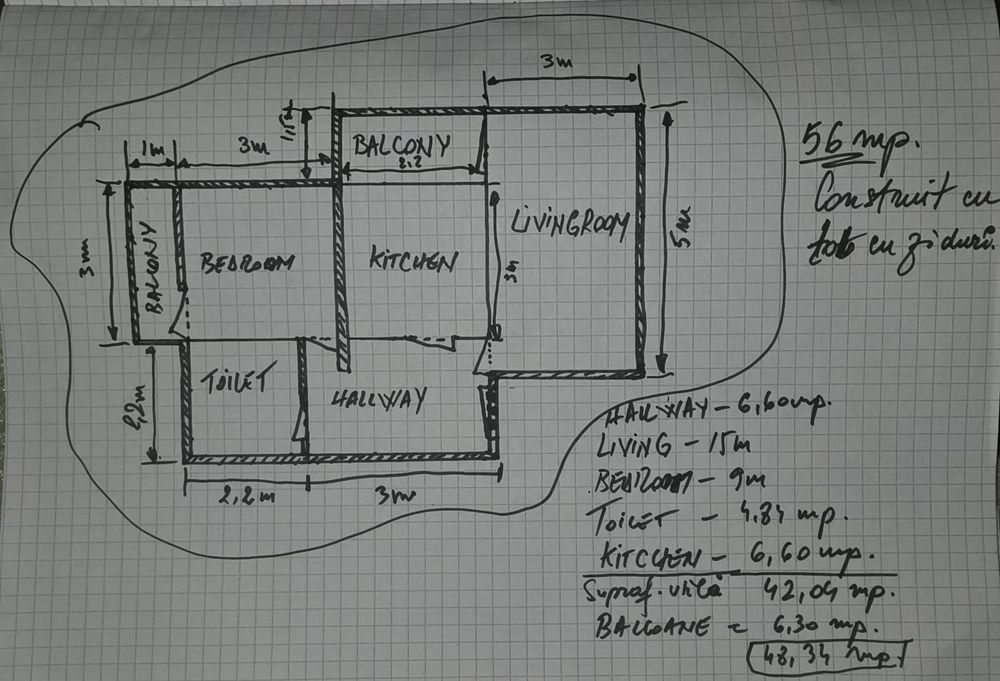 3m
1,5m
1m
3m
BALCONY
2,2
56 mp.
Construit cu
tot cu ziduri.
3m
BALCONY
BEDROOM
KITCHEN
3m
LIVINGROOM
5m
2,2m
TOILET
HALLWAY
2,2m
3m
HALLWAY - 6,60mp.
LIVING - 15m
BEDROOM - 9m
TOILET - 4,84 mp.
KITCHEN - 6,60 mp.
Supraf. utilă 42,04 mp.
BALCOANE = 6,30 mp.
48,34 mp.